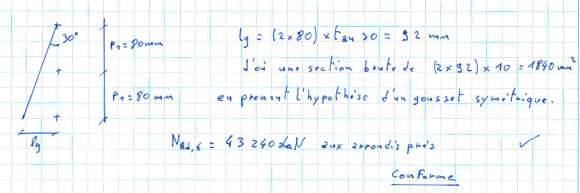 30°
P1 = 80mm
P1 = 80 mm
ly
ly = (2x80) x tan 30 = 92 mm
D'où une section brute de (2x92) x 10 = 1840 mm²
en prenant l'hypothèse d'un gousset symétrique.
NRd,6 = 43 240 daN aux arrondis près ✓
Conforme